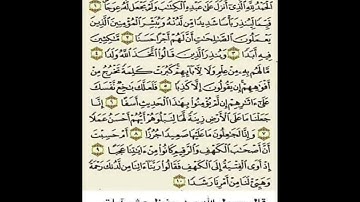 الْحَمْدُ لِلَّهِ الَّذِي أَنزَلَ عَلَىٰ عَبْدِهِ الْكِتَٰبَ وَلَمْ يَجْعَل لَّهُ عِوَجَا ١
قَيِّمًا لِّيُنذِرَ بَأْسًا شَدِيدًا مِّن لَّدُنْهُ وَيُبَشِّرَ الْمُؤْمِنِينَ الَّذِينَ
يَعْمَلُونَ الصَّٰلِحَٰتِ أَنَّ لَهُمْ أَجْرًا حَسَنًا ٢ مَّٰكِثِينَ
فِيهِ أَبَدًا ٣ وَيُنذِرَ الَّذِينَ قَالُوا اتَّخَذَ اللَّهُ وَلَدًا ٤
مَّا لَهُم بِهِ مِنْ عِلْمٍ وَلَا لِءَابَآئِهِمْ كَبُرَتْ كَلِمَةً تَخْرُجُ مِنْ
أَفْوَٰهِهِمْ إِن يَقُولُونَ إِلَّا كَذِبًا ٥ فَلَعَلَّكَ بَٰخِعٌ نَّفْسَكَ
عَلَىٰ ءَاثَٰرِهِمْ إِن لَّمْ يُؤْمِنُوا بِهَٰذَا الْحَدِيثِ أَسَفًا ٦ إِنَّا
جَعَلْنَا مَا عَلَى الْأَرْضِ زِينَةً لَّهَا لِنَبْلُوَهُمْ أَيُّهُمْ أَحْسَنُ عَمَلًا
٧ وَإِنَّا لَجَٰعِلُونَ مَا عَلَيْهَا صَعِيدًا جُرُزًا ٨ أَمْ حَسِبْتَ
أَنَّ أَصْحَٰبَ الْكَهْفِ وَالرَّقِيمِ كَانُوا مِنْ ءَايَٰتِنَا عَجَبًا ٩
إِذْ أَوَى الْفِتْيَةُ إِلَى الْكَهْفِ فَقَالُوا رَبَّنَآ ءَاتِنَا مِن لَّدُنكَ رَحْمَةً
وَهَيِّئْ لَنَا مِنْ أَمْرِنَا رَشَدًا ١٠